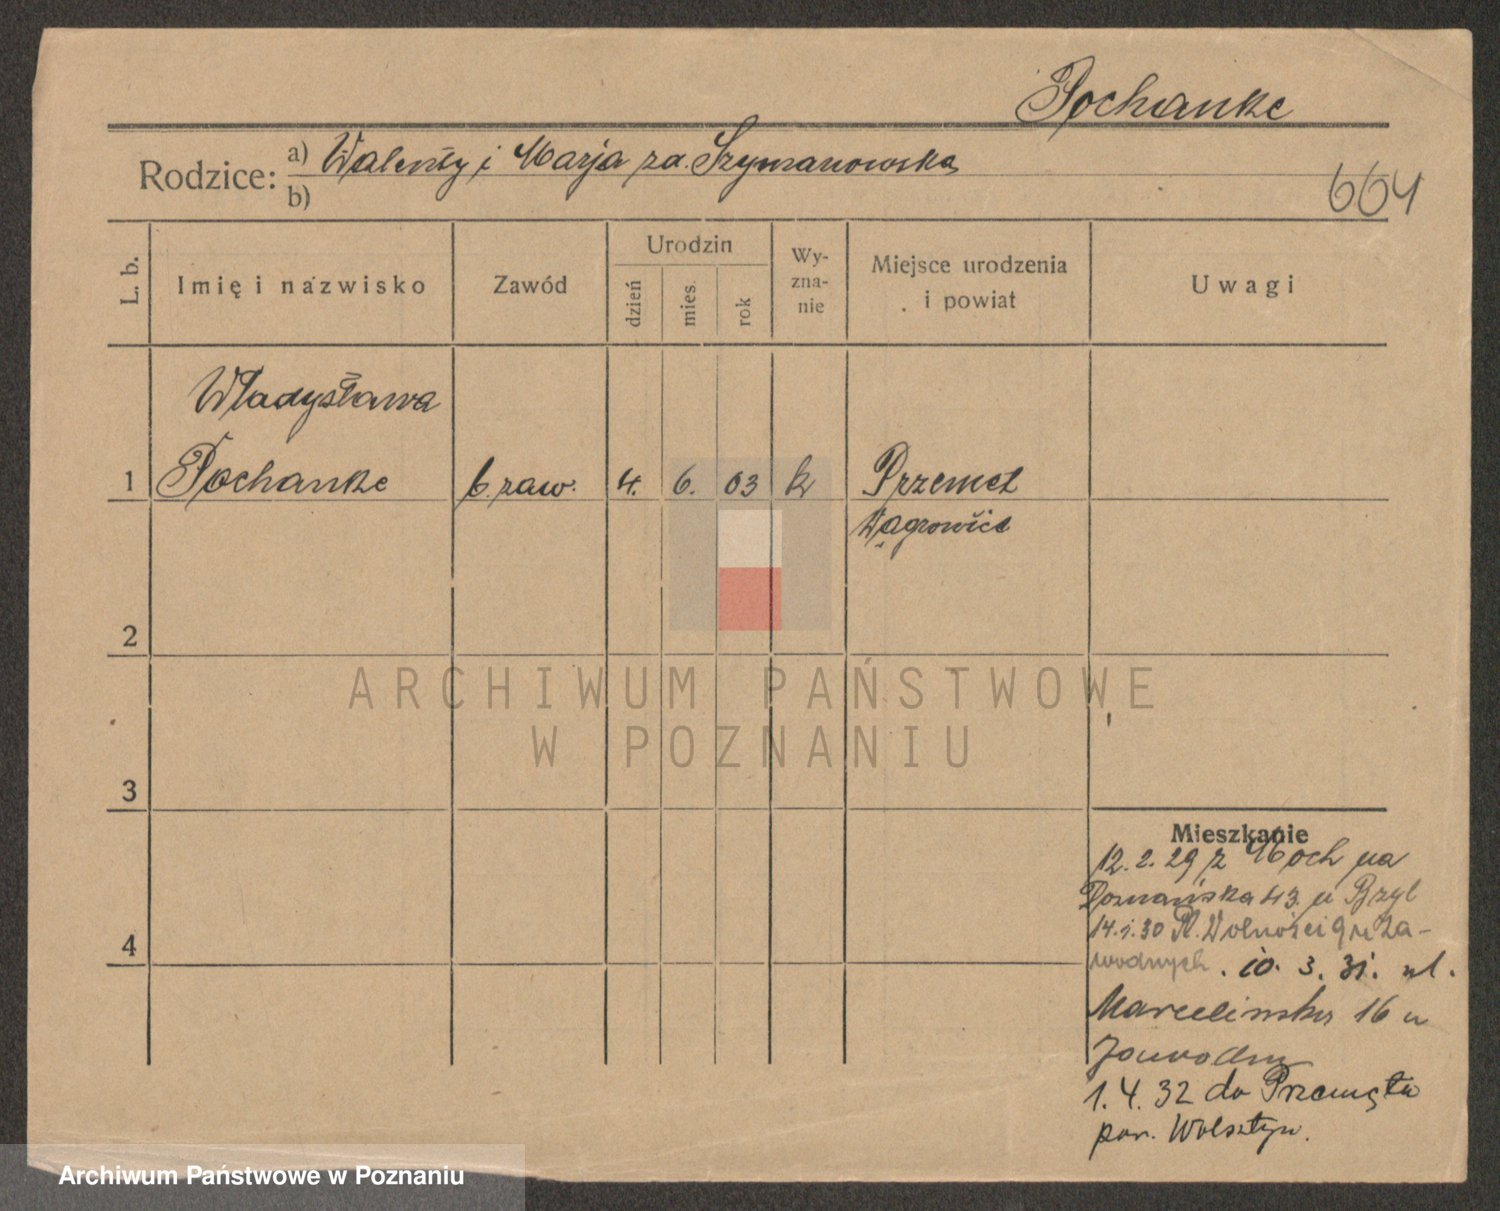 Pochanke
Rodzice: a) Walenty i Marja za. Szymanowska
b)
664
L. b.
Imię i nazwisko
Zawód
Urodzin
dzień
mies.
rok
Wy-
zna-
nie
Miejsce urodzenia
i powiat
Uwagi
Władysława
1 Pochanke b. zaw. 4. 6. 03 k Przemęt
Wągrowiec
2
ARCHIWUM PAŃSTWOWE
W POZNANIU
3
Mieszkanie
12.2.29 z na
Poznańska 43. u Bryl
14.1.30 Pl. Wolności 9 u Za-
wodnych. 10. 3. 31. ul.
Marcelińska 16 u
1.4.32 do Przemęta
pow. Wolsztyn.
4
Archiwum Państwowe w Poznaniu